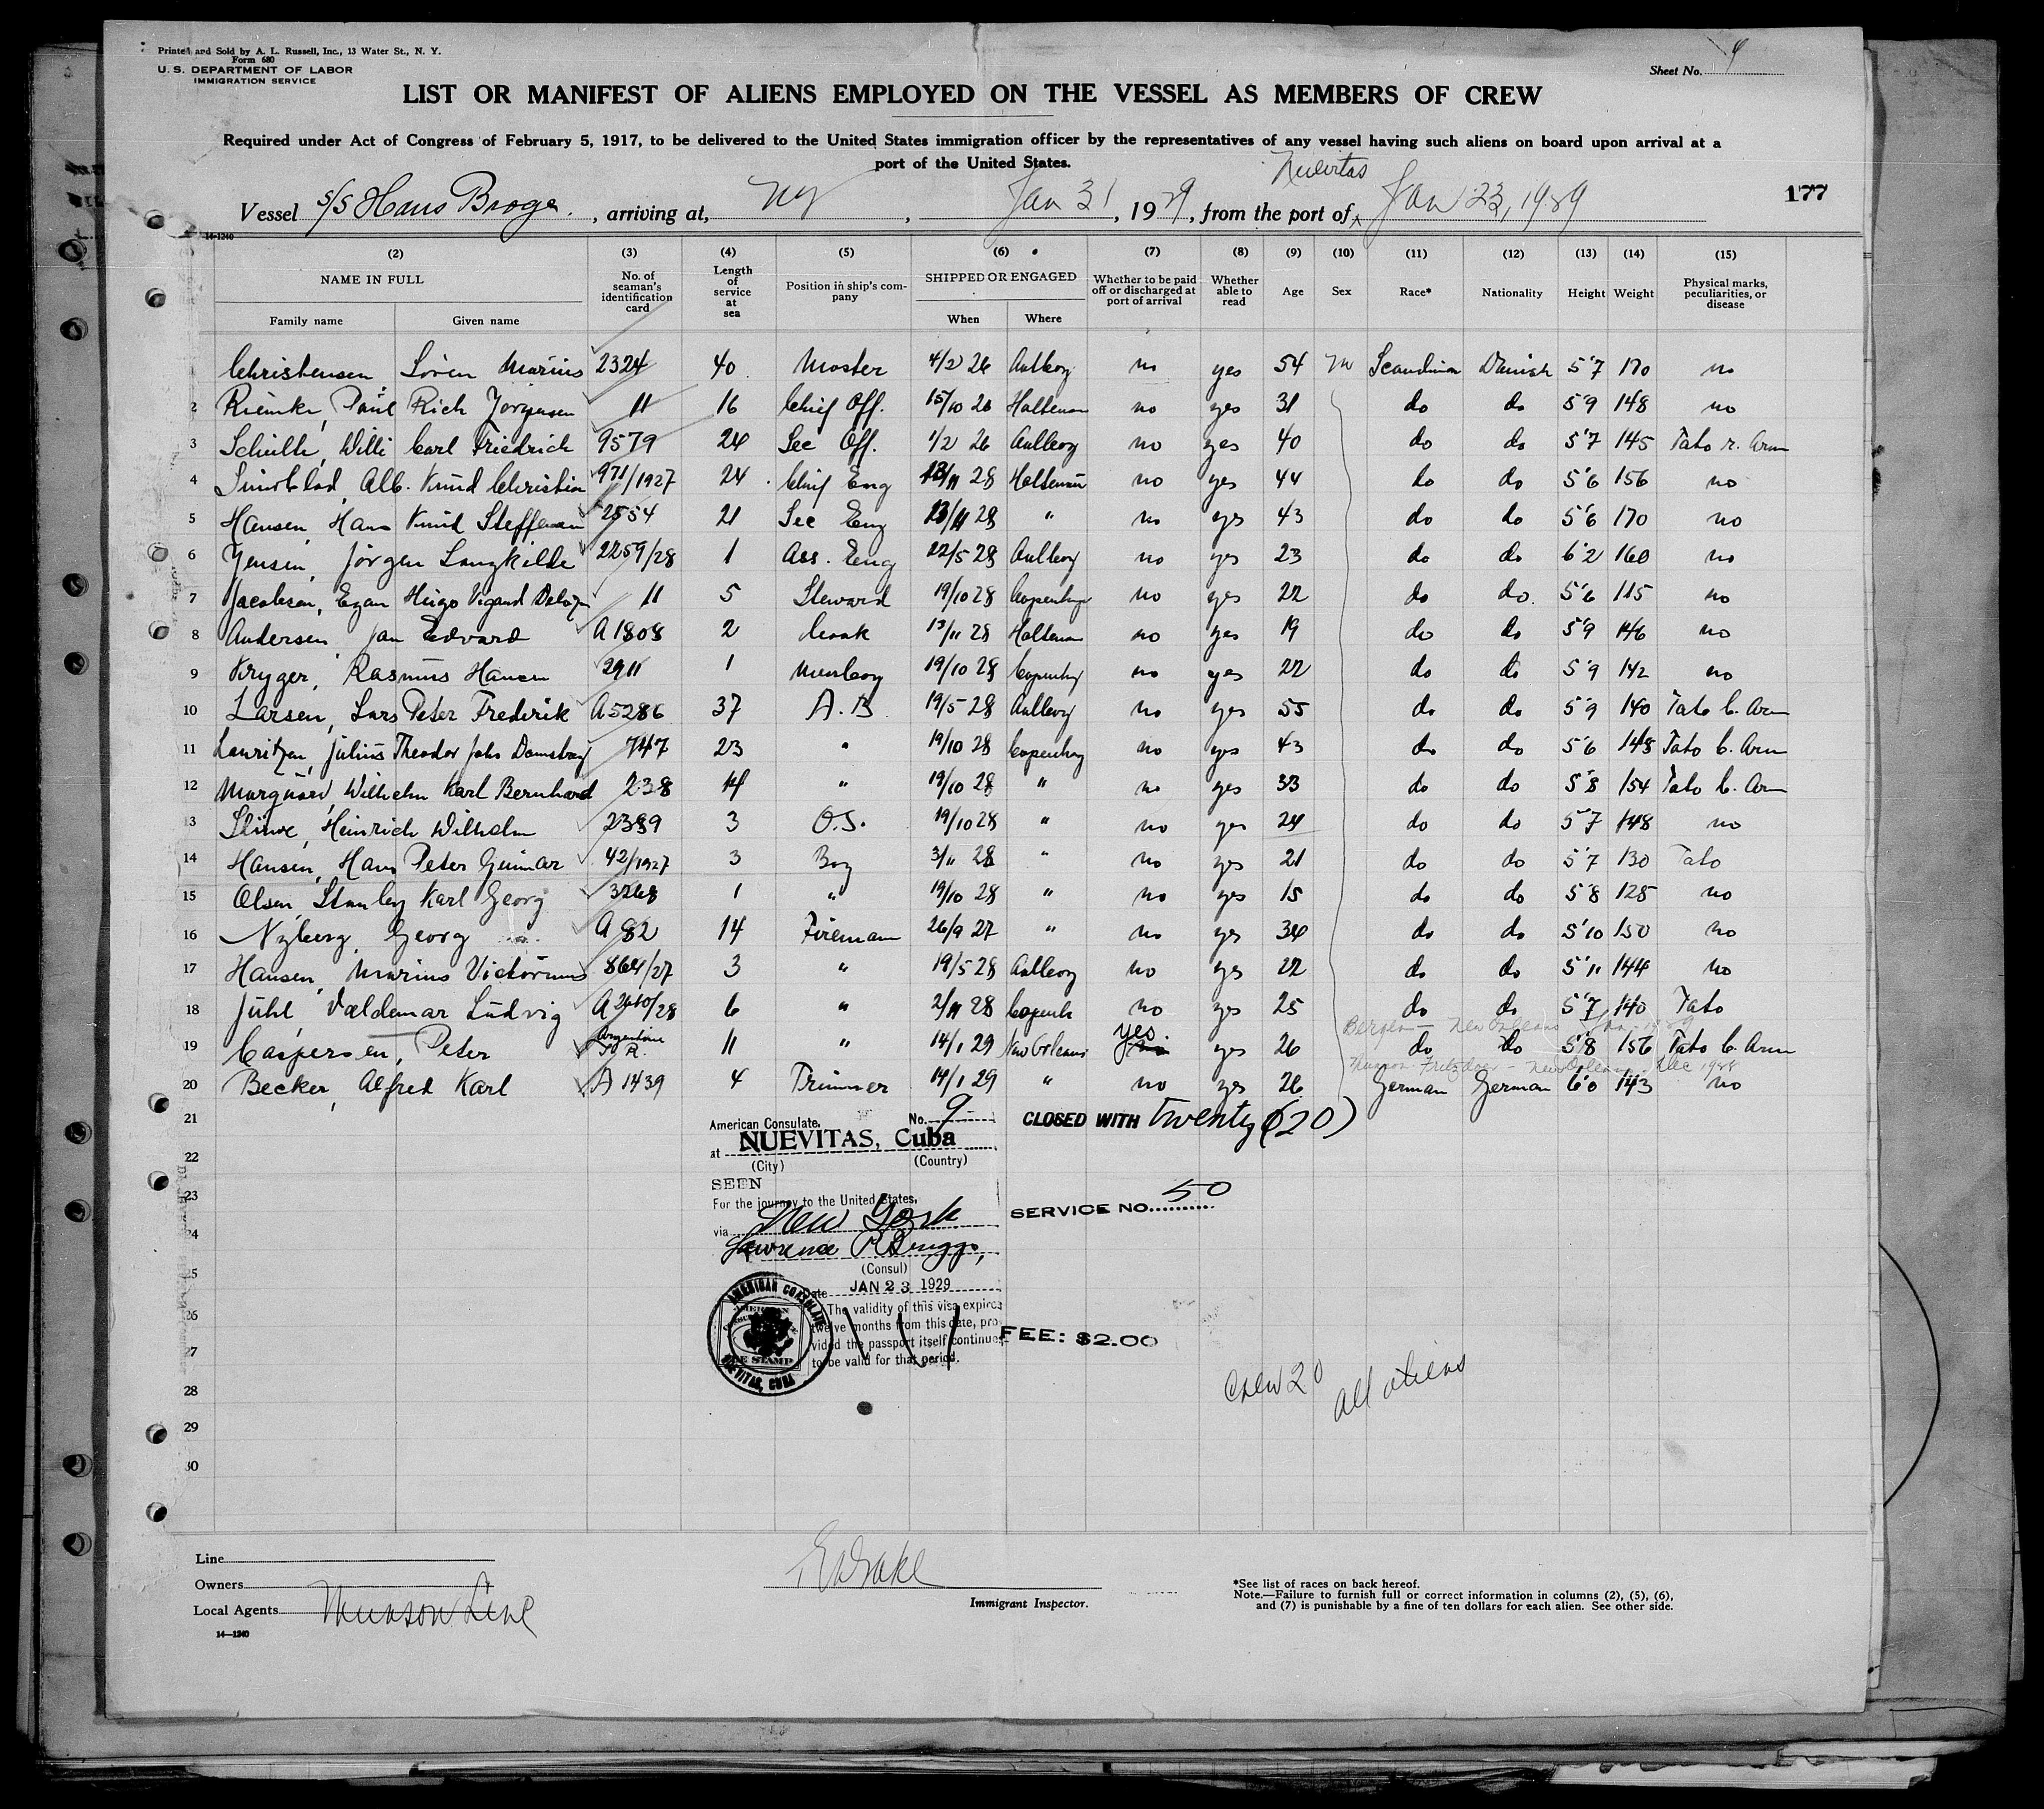 Printed and Sold by A. L. Russell, Inc., 13 Water St., N. Y.
Form 680
U. S. DEPARTMENT OF LABOR
IMMIGRATION SERVICE
Sheet No. 4
LIST OR MANIFEST OF ALIENS EMPLOYED ON THE VESSEL AS MEMBERS OF CREW
Required under Act of Congress of February 5, 1917, to be delivered to the United States immigration officer by the representatives of any vessel having such aliens on board upon arrival at a
port of the United States.
Nuevitas
Vessel S/S Hans Broge, arriving at, NY, Jan 31, 1929, from the port of Jan 23, 1929
177
14-1240
(2) (3) (4) (5) (6) (7) (8) (9) (10) (11) (12) (13) (14) (15)
NAME IN FULL No. of seaman's identification card Length of service at sea Position in ship's company SHIPPED OR ENGAGED Whether to be paid off or discharged at port of arrival Whether able to read Age Sex Race* Nationality Height Weight Physical marks, peculiarities, or disease
Family name Given name When Where
Christensen Sören Marius 2324 40 Master 4/2 26 Aalborg no yes 54 m Scandinav Danish 5'7 170 no
2 Riemke, Paul Rich Jorgensen 11 16 Chief Off. 15/10 26 Holtenau no yes 31 do do 5'9 148 no
3 Schulth, Willi Carl Friedrich 9579 24 Sec Off. 1/2 26 Aalborg no yes 40 do do 5'7 145 Tato r. Arm
4 Alb. Knud Christian 971/1927 24 Chief Eng 13/11 28 Holtenau no yes 44 do do 5'6 156 no
5 Hansen, Hans Knud Steffensen 2554 21 Sec Eng 13/11 28 " no yes 43 do do 5'6 170 no
6 Jensen, Jörgen Langkilde 2259/28 1 Ass. Eng 22/5 28 Aalborg no yes 23 do do 6'2 160 no
7 Jacobsen, Egan Hugo Vigand 11 5 Steward 19/10 28 Copenhg no yes 22 do do 5'6 115 no
8 Andersen Jan Edvard A 1808 2 Cook 13/11 28 Holtenau no yes 19 do do 5'9 146 no
9 Kryger, Rasmus Hansen 2911 1 Messboy 19/10 28 Copenhg no yes 22 do do 5'9 142 no
10 Larsen, Lars Peter Frederik A 5286 37 A. B 19/5 28 Aalborg no yes 55 do do 5'9 140 Tato b. Arm
11 Lauritzen, Julius Theodor John Damsberg 747 23 " 19/10 28 Copenhg no yes 43 do do 5'6 148 Tato b. Arm
12 Marquard, Wilhelm Karl Bernhard 238 14 " 19/10 28 " no yes 33 do do 5'8 154 Tato b. Arm
13 Heinrich Wilhelm 2389 3 O.S. 19/10 28 " no yes 24 do do 5'7 148 no
14 Hansen, Hans Peter Gunnar 42/1927 3 Boy 3/11 28 " no yes 21 do do 5'7 130 Tato
15 Olsen, Stanley Karl Georg 3268 1 " 19/10 28 " no yes 15 do do 5'8 128 no
16 Nyberg, Georg A 82 14 Fireman 26/9 27 " no yes 34 do do 5'10 150 no
17 Hansen, Marius Victorinus 864/27 3 " 19/5 28 Aalborg no yes 22 do do 5'11 144 no
18 Juhl, Valdemar Ludvig A 2610/28 6 " 2/11 28 Copenh no yes 25 do do 5'7 140 Tato
Bergen — New Orleans Jan 1929
19 Caspersen, Peter Argentine S.R. 11 " 14/1 29 New Orleans yes yes 26 do do 5'8 156 Tato b. Arm
New Orleans Dec 1928
20 Becker, Alfred Karl A 1439 4 Trimmer 14/1 29 " no yes 26 German German 6'0 143 no
21
American Consulate, No. 9
CLOSED WITH twenty (20)
at NUEVITAS, Cuba
22
(City) (Country)
SEEN
23
For the journey to the United States,
SERVICE NO. 50
via New York
24
Lawrence P. Briggs,
(Consul)
25
Date JAN 23 1929
26
The validity of this visa expires
twelve months from this date, pro-
vided the passport itself continues
to be valid for that period.
FEE: $2.00
AMERICAN CONSULATE
FEE STAMP
NUEVITAS, CUBA
27
28
Crew 20 all aliens
29
30
Line
Owners
Local Agents Munson Line
14—1240
Immigrant Inspector.
*See list of races on back hereof.
Note.—Failure to furnish full or correct information in columns (2), (5), (6),
and (7) is punishable by a fine of ten dollars for each alien. See other side.